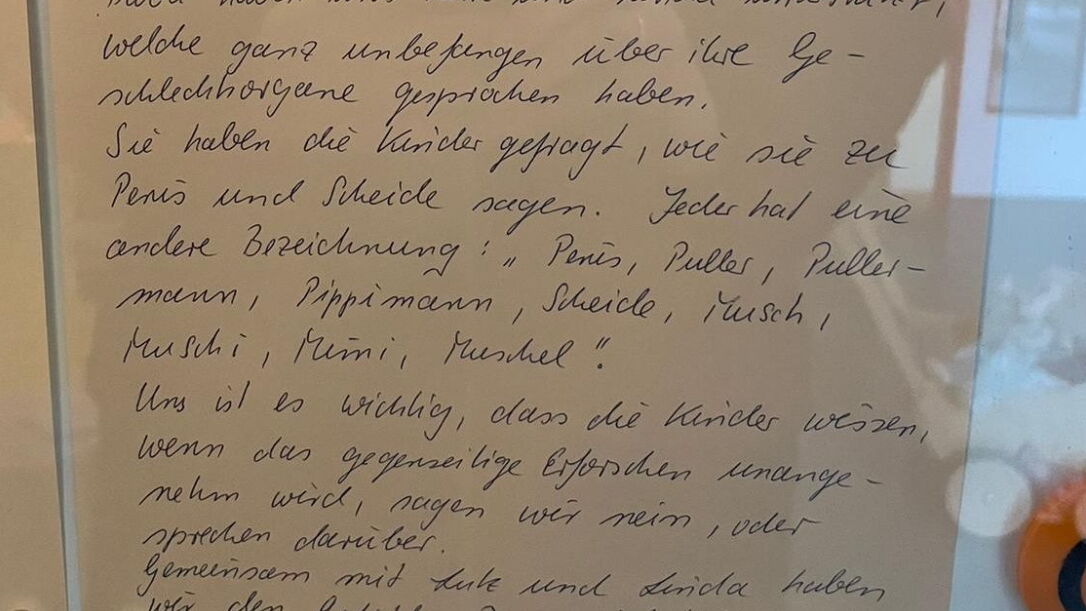 welche ganz unbefangen über ihre Ge-
schlechtsorgane gesprochen haben.
Sie haben die Kinder gefragt, wie sie zu
Penis und Scheide sagen. Jeder hat eine
andere Bezeichnung: „Penis, Puller, Puller-
mann, Pippimann, Scheide, Musch,
Muschi, Mimi, Muschel".
Uns ist es wichtig, dass die Kinder wissen,
wenn das gegenseitige Erforschen unange-
nehm wird, sagen wir nein, oder
sprechen darüber.
Gemeinsam mit Lutz und Linda haben
wir den